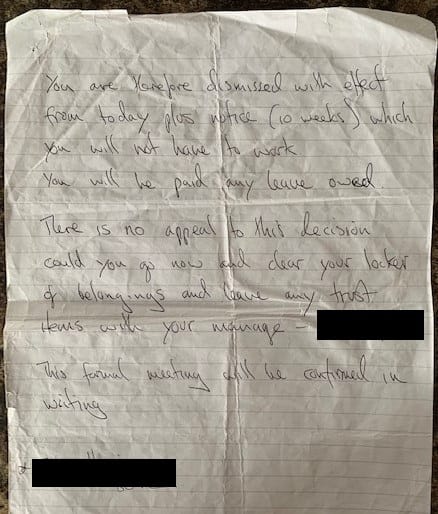 You are therefore dismissed with effect
from today plus notice (10 weeks) which
you will not have to work.
You will be paid any leave owed.
There is no appeal to this decision
could you go now and clear your locker
of belongings and leave any trust
items with your manage -
This formal meeting will be confirmed in
writing